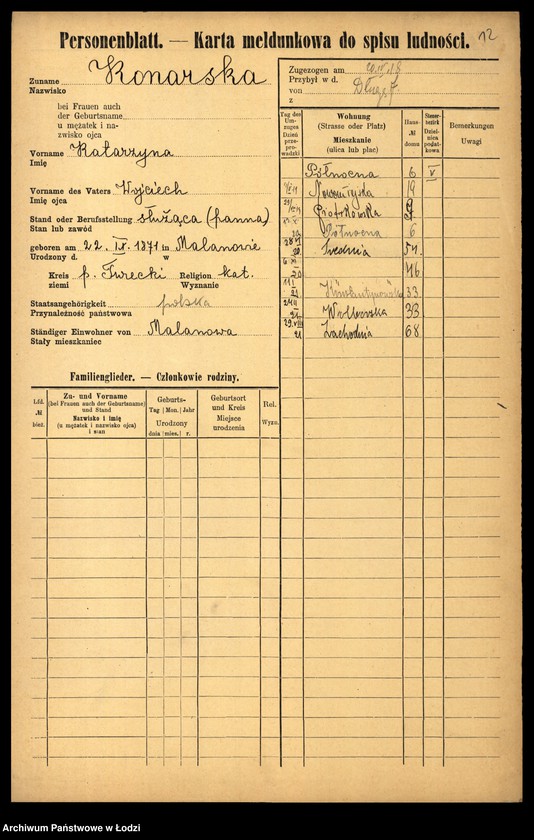 Personenblatt. — Karta meldunkowa do spisu ludności. 12
Zuname Konarska
Nazwisko
bei Frauen auch
der Geburtsname
u mężatek i na-
zwisko ojca
Vorname Katarzyna
Imię
Vorname des Vaters Wojciech
Imię ojca
Stand oder Berufsstellung służąca (panna)
Stan lub zawód
geboren am 22. IX. 1871 in Malanowie
Urodzony d. w
Kreis p. Turecki Religion kat.
ziemi Wyznanie
Staatsangehörigkeit polska
Przynależność państwowa
Ständiger Einwohner von Malanowa
Stały mieszkaniec
Zugezogen am
Przybył w d.
von Długa
z
Tag des Umzuges
Dzień przeprowadzki
Wohnung
(Strasse oder Platz)
Mieszkanie
(ulica lub plac)
Haus-
№
domu
Steuerbezirk
Dzielnica podatkowa
Bemerkungen
Uwagi
Północna 6 V
19
Piotrkowska
Północna 6
Średnia 54
46
33
33
Zachodnia 68
Familienglieder. — Członkowie rodziny.
Lfd.
№
bież.
Zu- und Vorname
(bei Frauen auch der Geburtsname)
und Stand
Nazwisko i imię
(u mężatek i nazwisko ojca)
i stan
Geburts-
Tag Mon. Jahr
Urodzony
dnia mies. r.
Geburtsort
und Kreis
Miejsce
urodzenia
Rel.
Wyzn.
Archiwum Państwowe w Łodzi